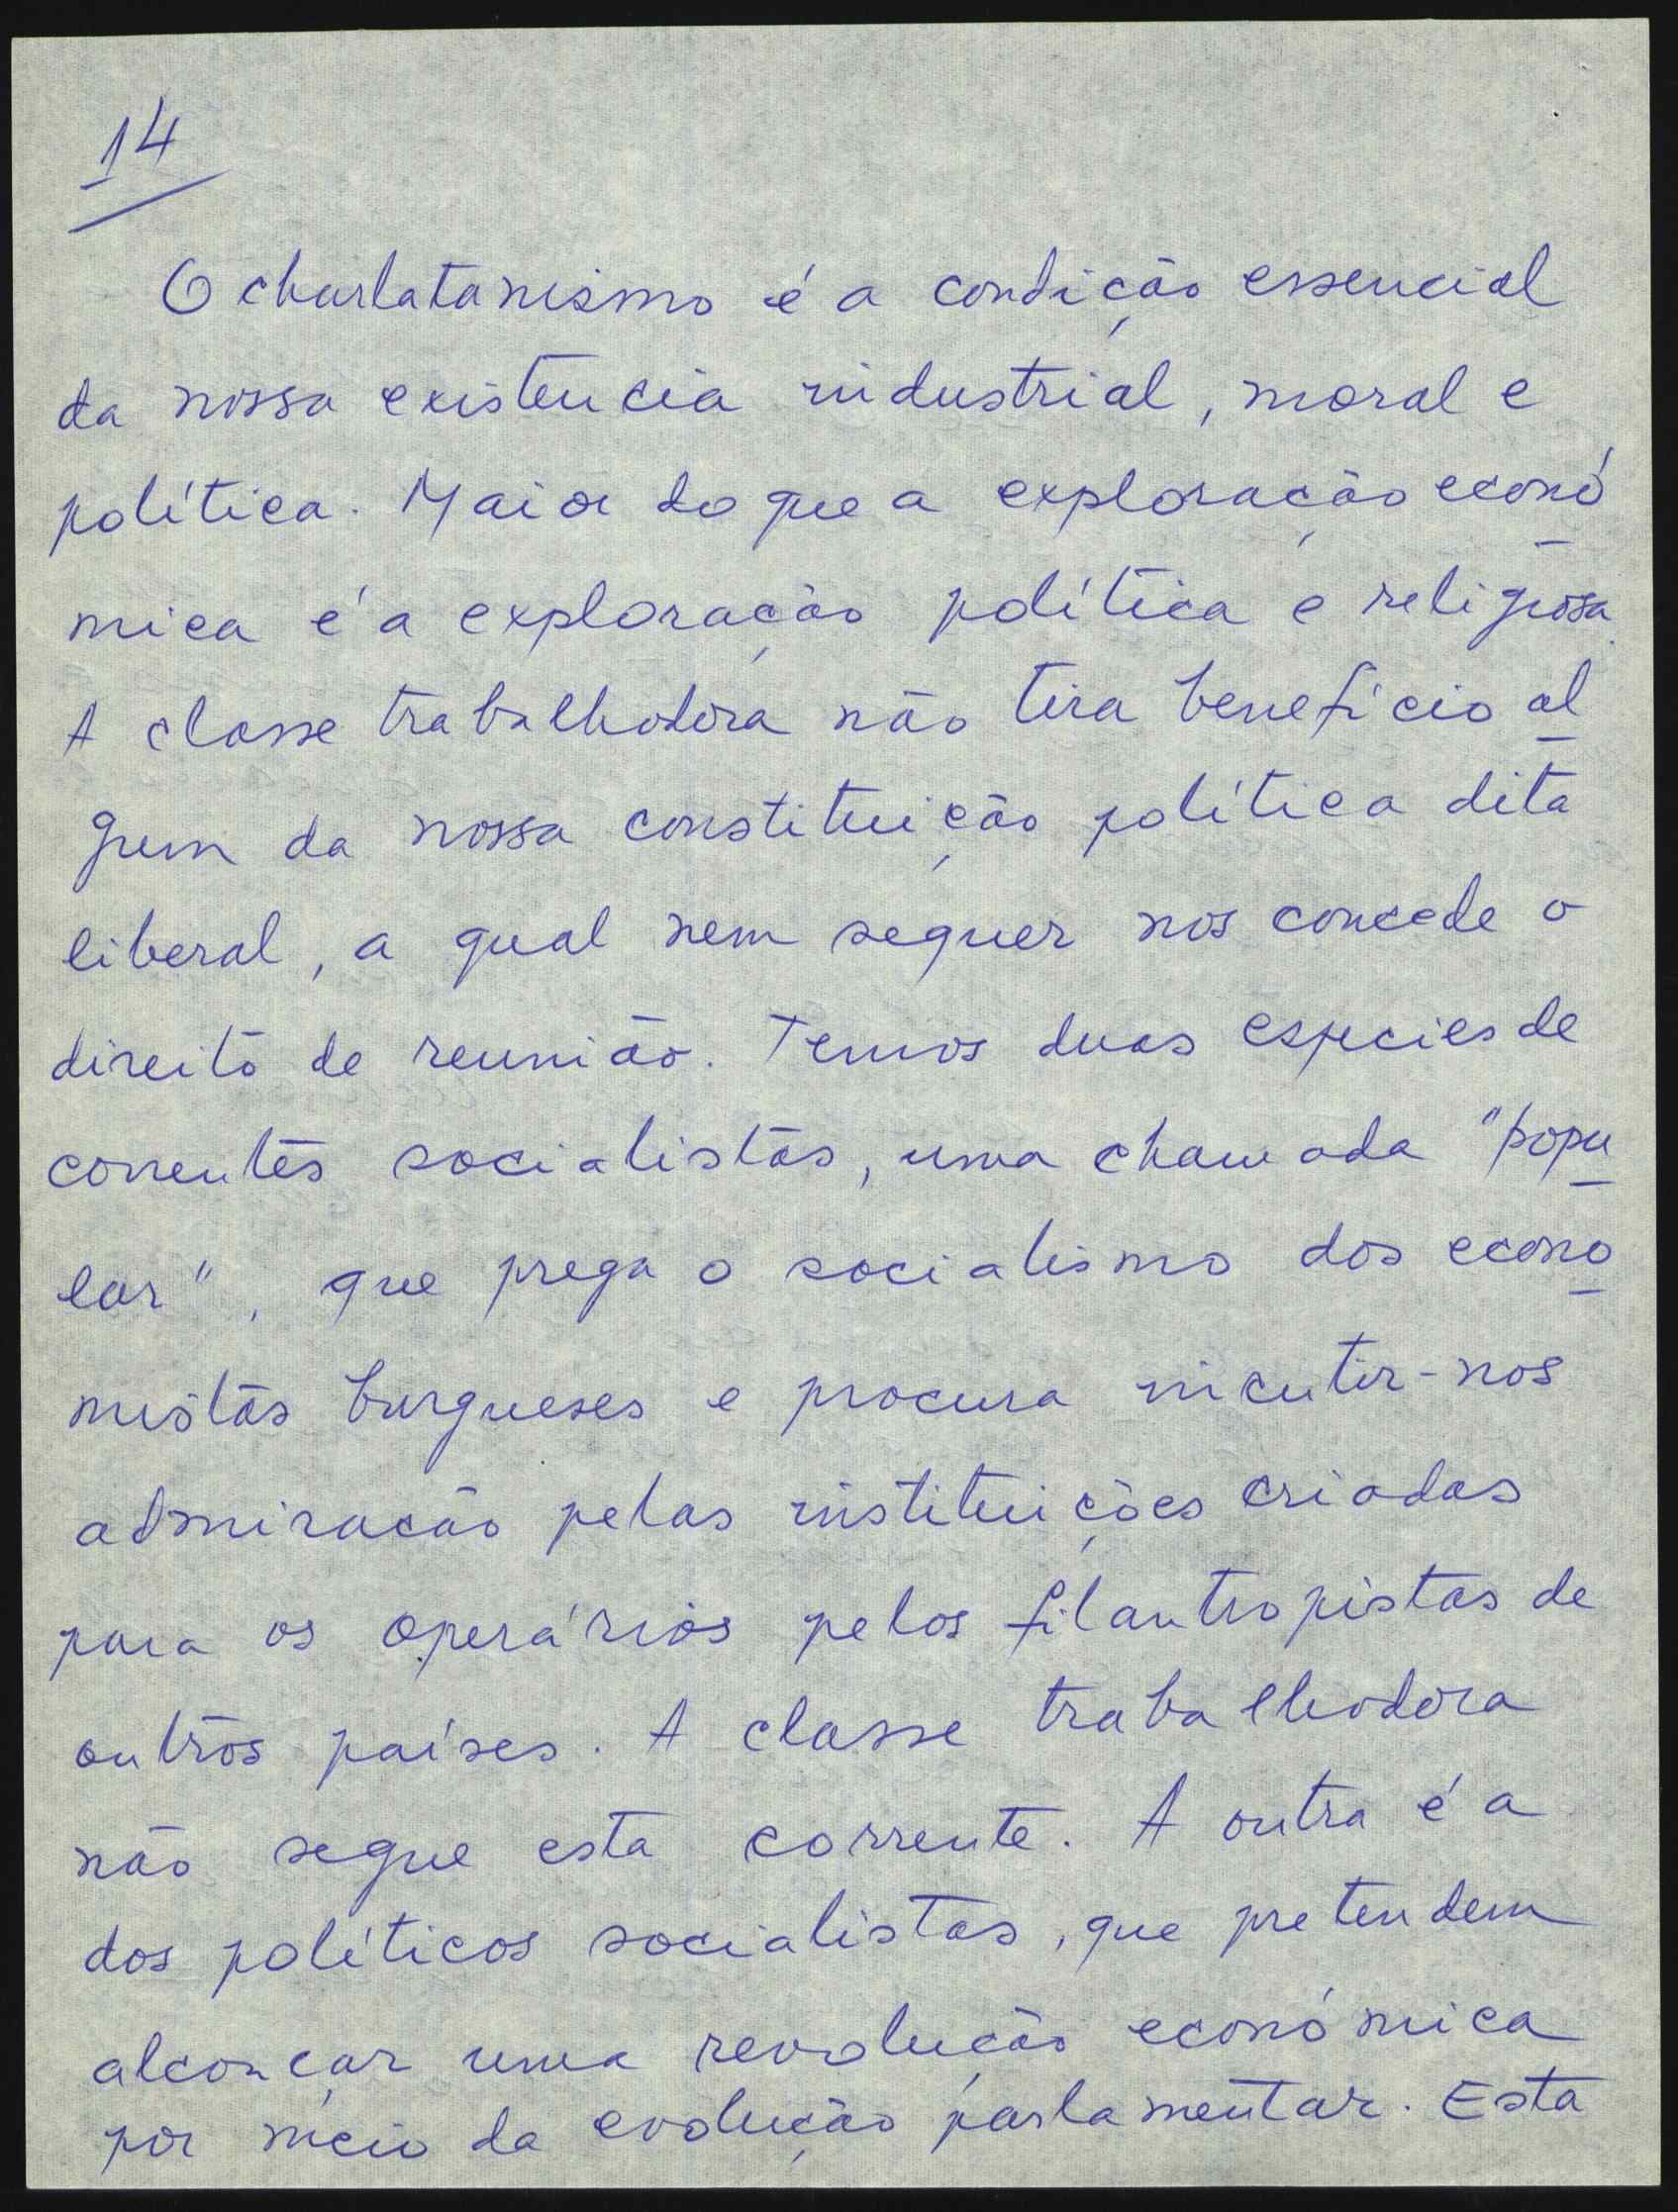 14
O charlatanismo é a condição essencial
da nossa existencia industrial, moral e
política. Maior do que a exploração econó
mica é a exploração política e religiosa.
A classe trabalhadora não tira benefício al
gum da nossa constituição política dita
liberal, a qual nem sequer nos concede o
direito de reunião. Temos duas especies de
correntes socialistas, uma chamada "popu
lar", que prega o socialismo dos econo
mistas burgueses e procura incutir-nos
admiração pelas instituições criadas
para os operários pelos filantropistas de
outros países. A classe trabalhadora
não segue esta corrente. A outra é a
dos políticos socialistas, que pretendem
alcançar uma revolução económica
por meio da evolução parlamentar. Esta